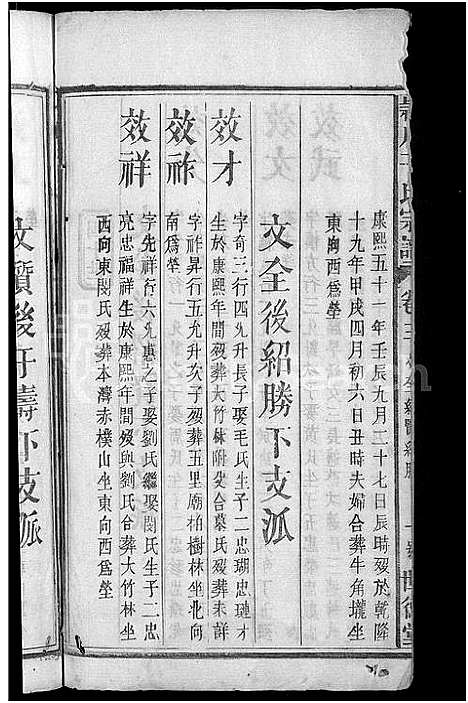 康熙五十一年壬辰九月二十七日辰時歿於乾隆
十九年甲戌四月初六日丑時夫婦合葬牛角壠坐
東向西爲塋
文全後紹勝下支派
效才
字奇三行四允升長子娶毛氏生子二忠瑚忠璉才
生於康熙年間歿葬大竹林附父合墓氏歿葬未詳
效祚
字祚昇行五允升次子歿葬五里廟柏樹林坐北向
南爲塋
效祥
字先祥行六允惠之子娶劉氏繼娶閔氏生子二忠
亮忠福祥生於康熙年間歿與劉氏合葬大竹林坐
西向東閔氏歿葬本灣赤樸山坐東向西爲塋
文寶後
壽下支派
氏宗譜
卷